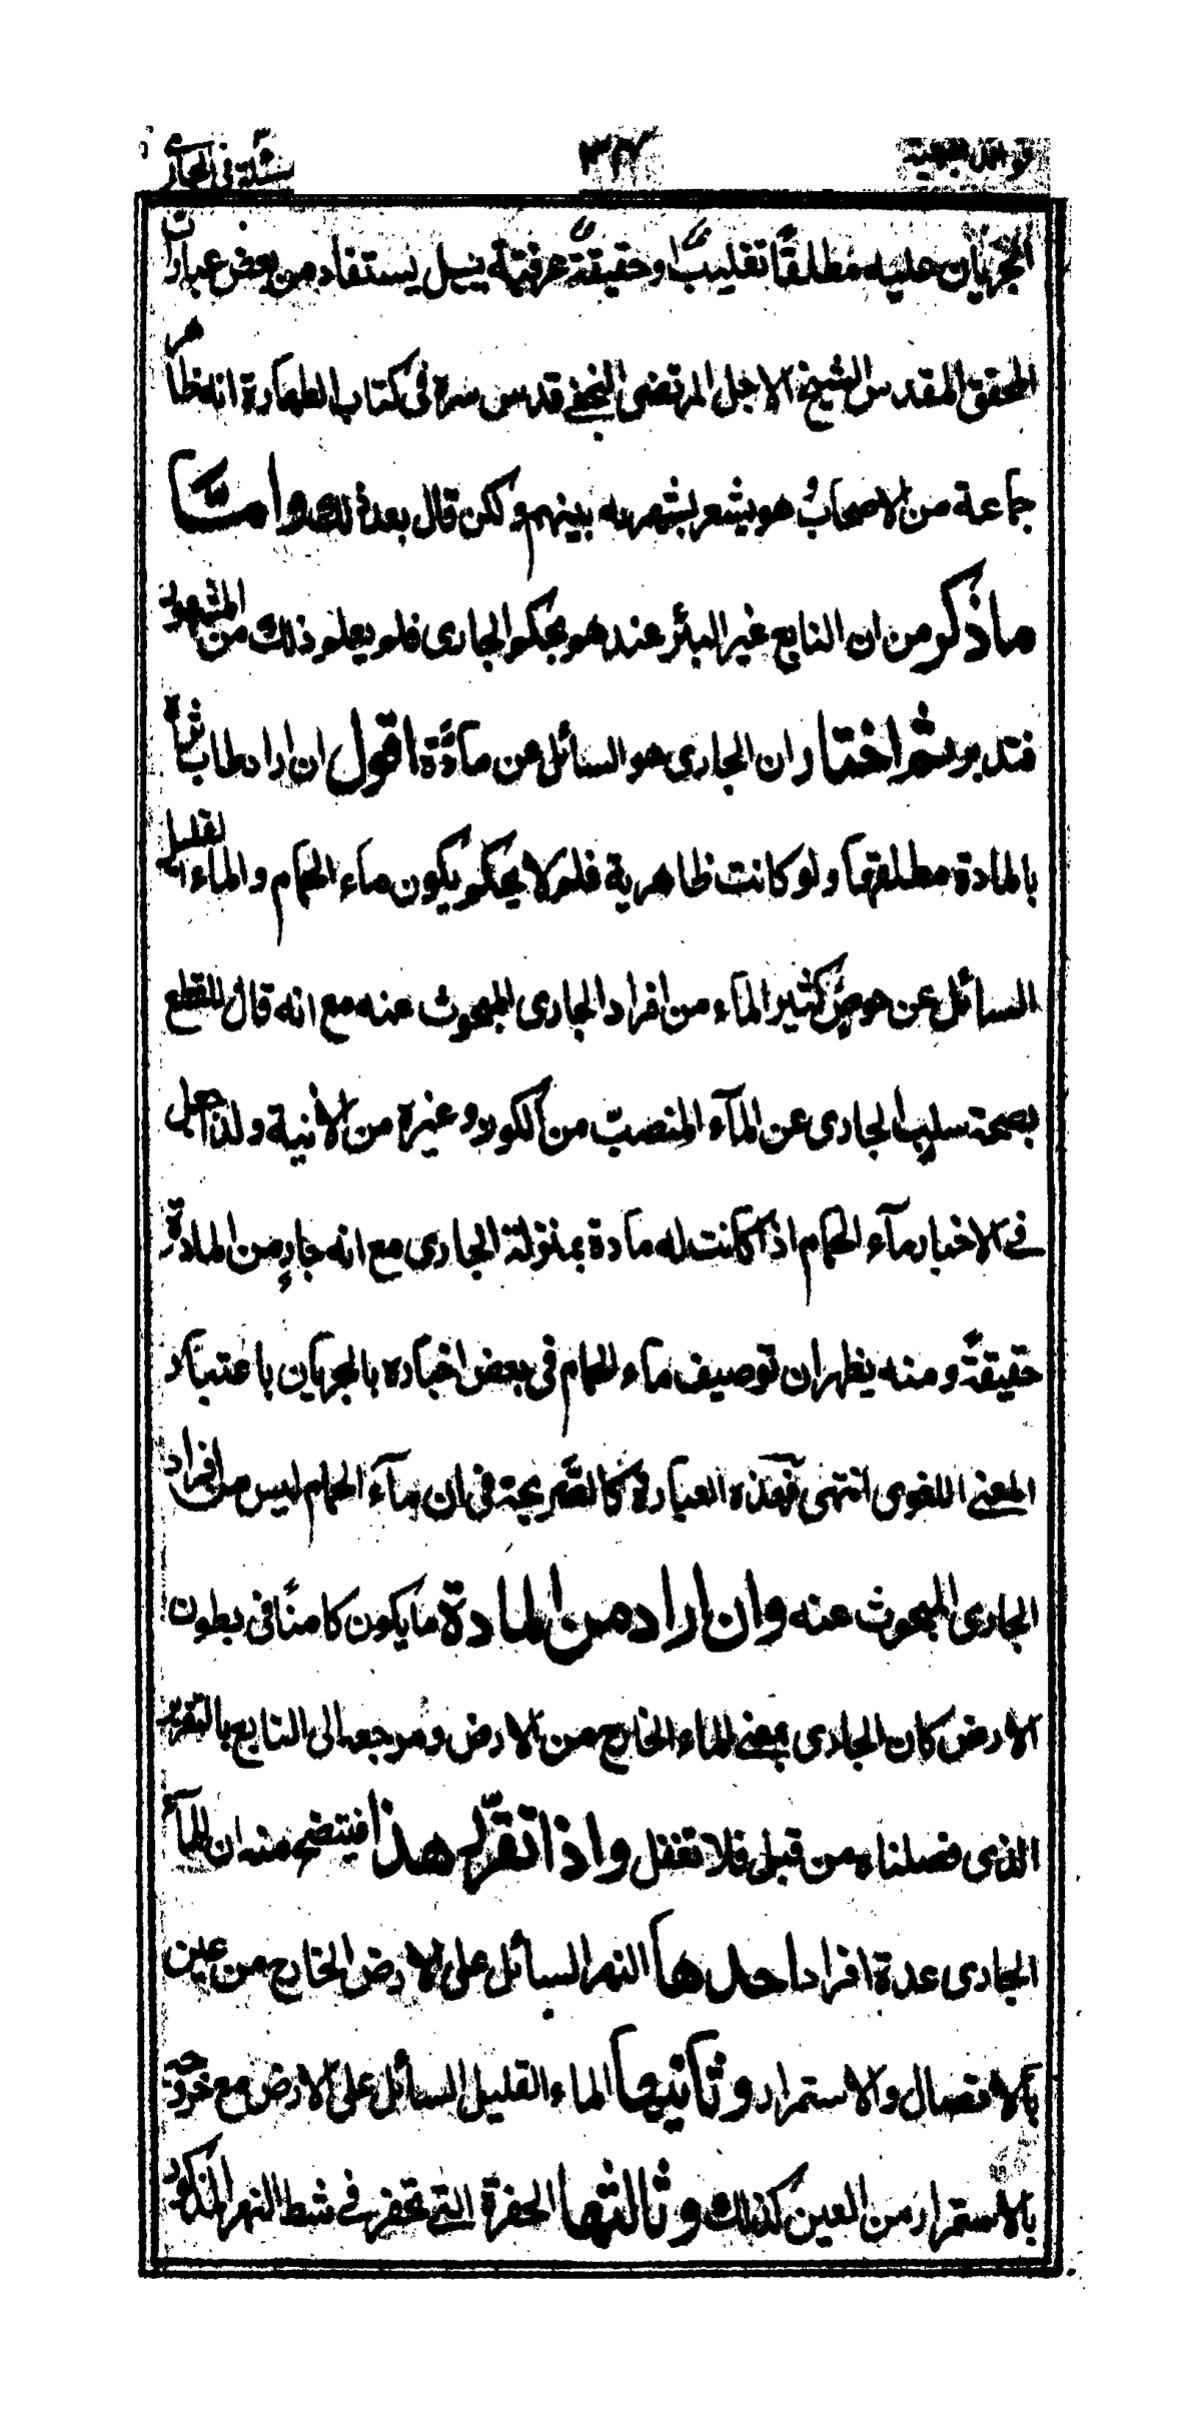 قواعد فقهية ٣٢٧ مسئلة فى الجارى
الجريان عليه مطلقًا تغليبًا او حقيقة عرفيّة بل يستفاد من بعض عبارات
المحقق المقدس الشيخ الاجل المرتضى النجفى قدس سره فى كتاب الطهارة انه ظاهر
جماعة من الاصحاب هو يشعر بشهرته بينهم ولكن قال بعد ذلك وامّا
ما ذكر من ان النابع غير البئر عندهم بحكم الجارى فلم يعلم ذلك من المشهور
فتدبر ثم اختار ان الجارى هو السائل عن مادّة اقول ان اراد طاب ثراه
بالمادة مطلقها ولو كانت ظاهرية فلم لا يحكم بكون ماء الحمام والماء القليل
السائل عن حوض كثير الماء من افراد الجارى المبحوث عنه مع انه قال للقطع
بصحة سلب الجارى عن المآء المنصب من الكوز وغيره من الآنية ولذا جعل
فى الاخبار مآء الحمام اذا كانت له مادة بمنزلة الجارى مع انه جارٍ من المادة
حقيقةً ومنه يظهر ان توصيف ماء الحمام فى بعض اخباره بالجريان باعتبار
المعنى اللغوى انتهى فهذه العبارة كالصّريحة فى ان مآء الحمام ليس من افراد
الجارى المبحوث عنه وان اراد من المادة ما يكون كامنًا فى بطون
الارض كان الجارى بمعنى الماء الخارج من الارض ومرجعه الى النابع بالتقرير
الذى فصلناه من قبل فلا تغفل واذا تقرّر هذا فيتضح منه ان للمآء
الجارى عدة افراد احدها النهر السائل على الارض الخارج من عين
بالاتصال والاستمرار وثانيها الماء القليل السائل على الارض مع خروجه
بالاستمرار من العين كذلك وثالثها الحفرة التى تحفر فى شط النهر المذكور